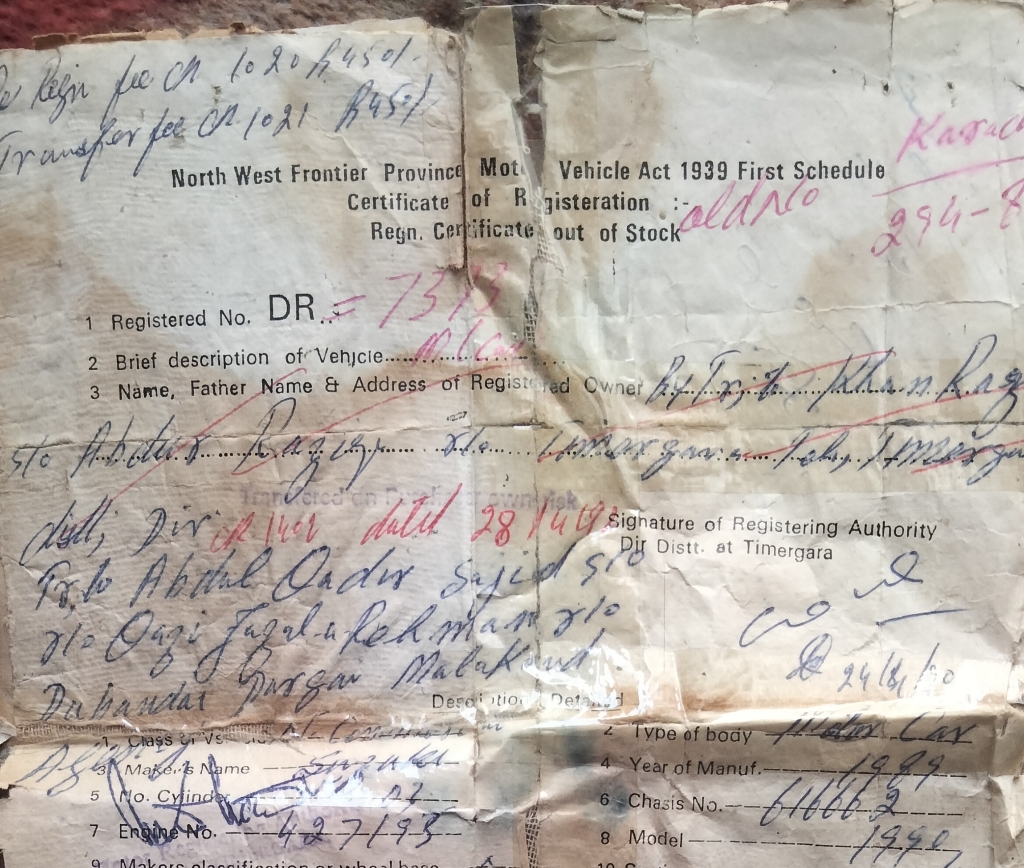 Regn fee CR 1020 R450/-
Transfer fee CR 1021 R45/-
Karach
North West Frontier Province Mot Vehicle Act 1939 First Schedule
Certificate of R gisteration :-
old No
294-8
Regn. Certificate out of Stock
1 Registered No. DR.= 7373
2 Brief description of Vehicle M/Car
3 Name, Father Name & Address of Registered Owner Khan
s/o Abdur Raziq r/o Timargara Teh; Timarga
Transferred on own risk
distt; Dir CR dated 28/4/9
Signature of Registering Authority
Dir Distt. at Timergara
Tr, to Abdul Qadir Sajid s/o
r/o Qazi Fazal-u-Rehman r/o
Dargai Malakand
24/4/90
Description Detailed
1. Class of Ve
2 Type of body Motor Car
3. Maker's Name Suzuki
4 Year of Manuf. 1989
5 No. Cylinder
6 Chasis No. 616662
7 Engine No. 427193
8 Model 1990
9 Makers classification or wheel base
10